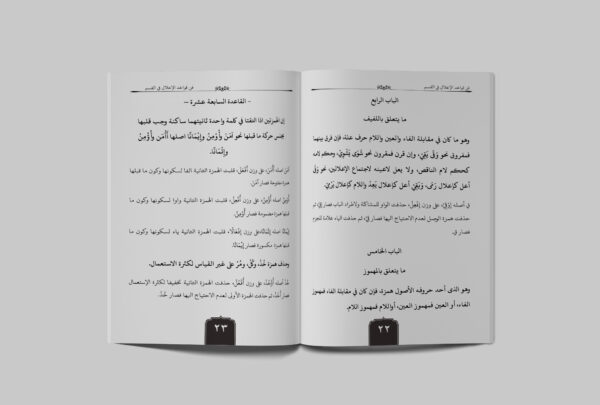 في قواعد الإعلال في القسم
الباب الرابع
ما يتعلق باللفيف
وهو ما كان في مقابلة الفاء والعين واللام حرف علة، فإن فرق بينهما
فمفروق نحو وَقَى يَقِيْ، وإن قرن فمقرون نحو شَوَى يَشْوِيْ، وحكم لامه
كحكم لام الناقص، ولا يعل لاعينه لاجتماع الإعلالين، نحو وَقَى
أعل كإعلال رَمَى، ويَقِيْ أعل كإعلال يَعِدُ واللام كإعلال يَرْمِيْ.
في أصله اِوْقِيْ، على وزن اِفْعِلْ، حذفت الواو
حذفت همزة الوصل لعدم الاحتياج اليها فصار قِيْ، ثم حذفت الياء علامة للجزم
فصار قِ.
الباب الخامس
ما يتعلق بالمهموز
وهو الذى أحد حروفه الأصول همزة، فإن كان في مقابلة الفاء فمهموز
الفاء، أو العين فمهموز العين، أو اللام فمهموز اللام.
٢٢
فن قواعد الإعلال في القسم
- القاعدة السابعة عشرة -
إن الهمزتين اذا التقتا في كلمة واحدة ثانيتهما ساكنة وجب قلبها
بجنس حركة ما قبلها نحو آمَنَ وأُوْمِنُ وإِيْمَانًا اصلها أَأْمَنَ وأُؤْمِنُ
وإِئْمَانًا.
آمَنَ اصله أَأْمَنَ، على وزن أَفْعَلَ، قلبت الهمزة الثانية الفا لسكونها وكون ما قبلها
همزة مفتوحة فصار آمَنَ.
أُوْمِنُ اصله أُؤْمِنُ، على وزن أُفْعِلُ، قلبت الهمزة الثانية واوا لسكونها وكون ما
قبلها همزة مضمومة فصار أُوْمِنُ.
إِيْمَانًا اصله إِئْمَانًا على وزن إِفْعَالًا، قلبت الهمزة الثانية ياء لسكونها وكون ما
قبلها همزة مكسورة فصار إِيْمَانًا.
وحذف همزة خُذْ، وكُلْ، ومُرْ على غير القياس لكثرة الاستعمال.
خُذْ اصله أُأْخُذْ، على وزن أُفْعُلْ، حذفت الهمزة الثانية تخفيفا لكثرة الإستعمال
فصار أُخُذْ، ثم حذفت الهمزة الأولى لعدم الاحتياج اليها فصار خُذْ.
٢٣